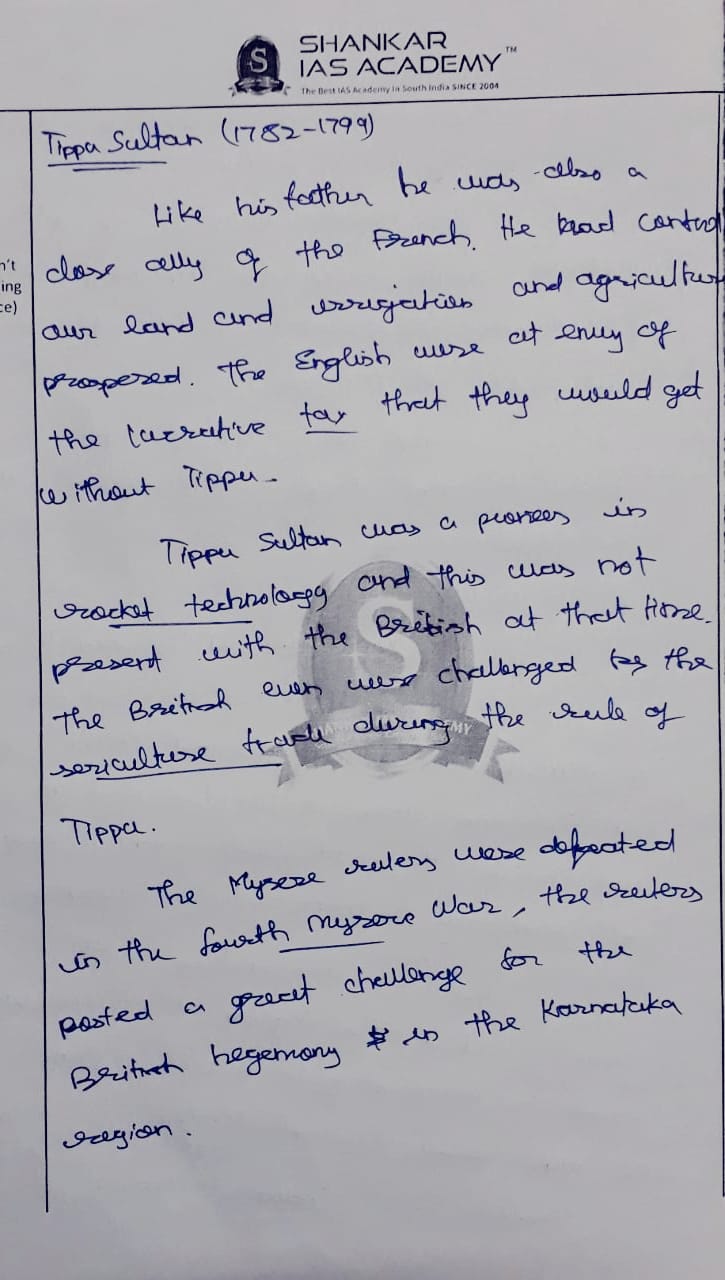 SHANKAR
IAS ACADEMY™
The Best IAS Academy in South India SINCE 2004
Tippu Sultan (1782-1799)
n't
ing
ce)
Like his father he was also a
close ally of the French. He had control
our land and irrigation and agriculture
prospered. The English were at envy of
the lucrative tax that they would get
without Tippu.
Tippu Sultan was a pioneer in
rocket technology and this was not
present with the British at that time.
The British even were challenged by the
sericulture trade during the rule of
Tippu.
The Mysore rulers were defeated
in the fourth Mysore War, the rulers
posted a great challenge for the
British hegemony in the Karnataka
region.